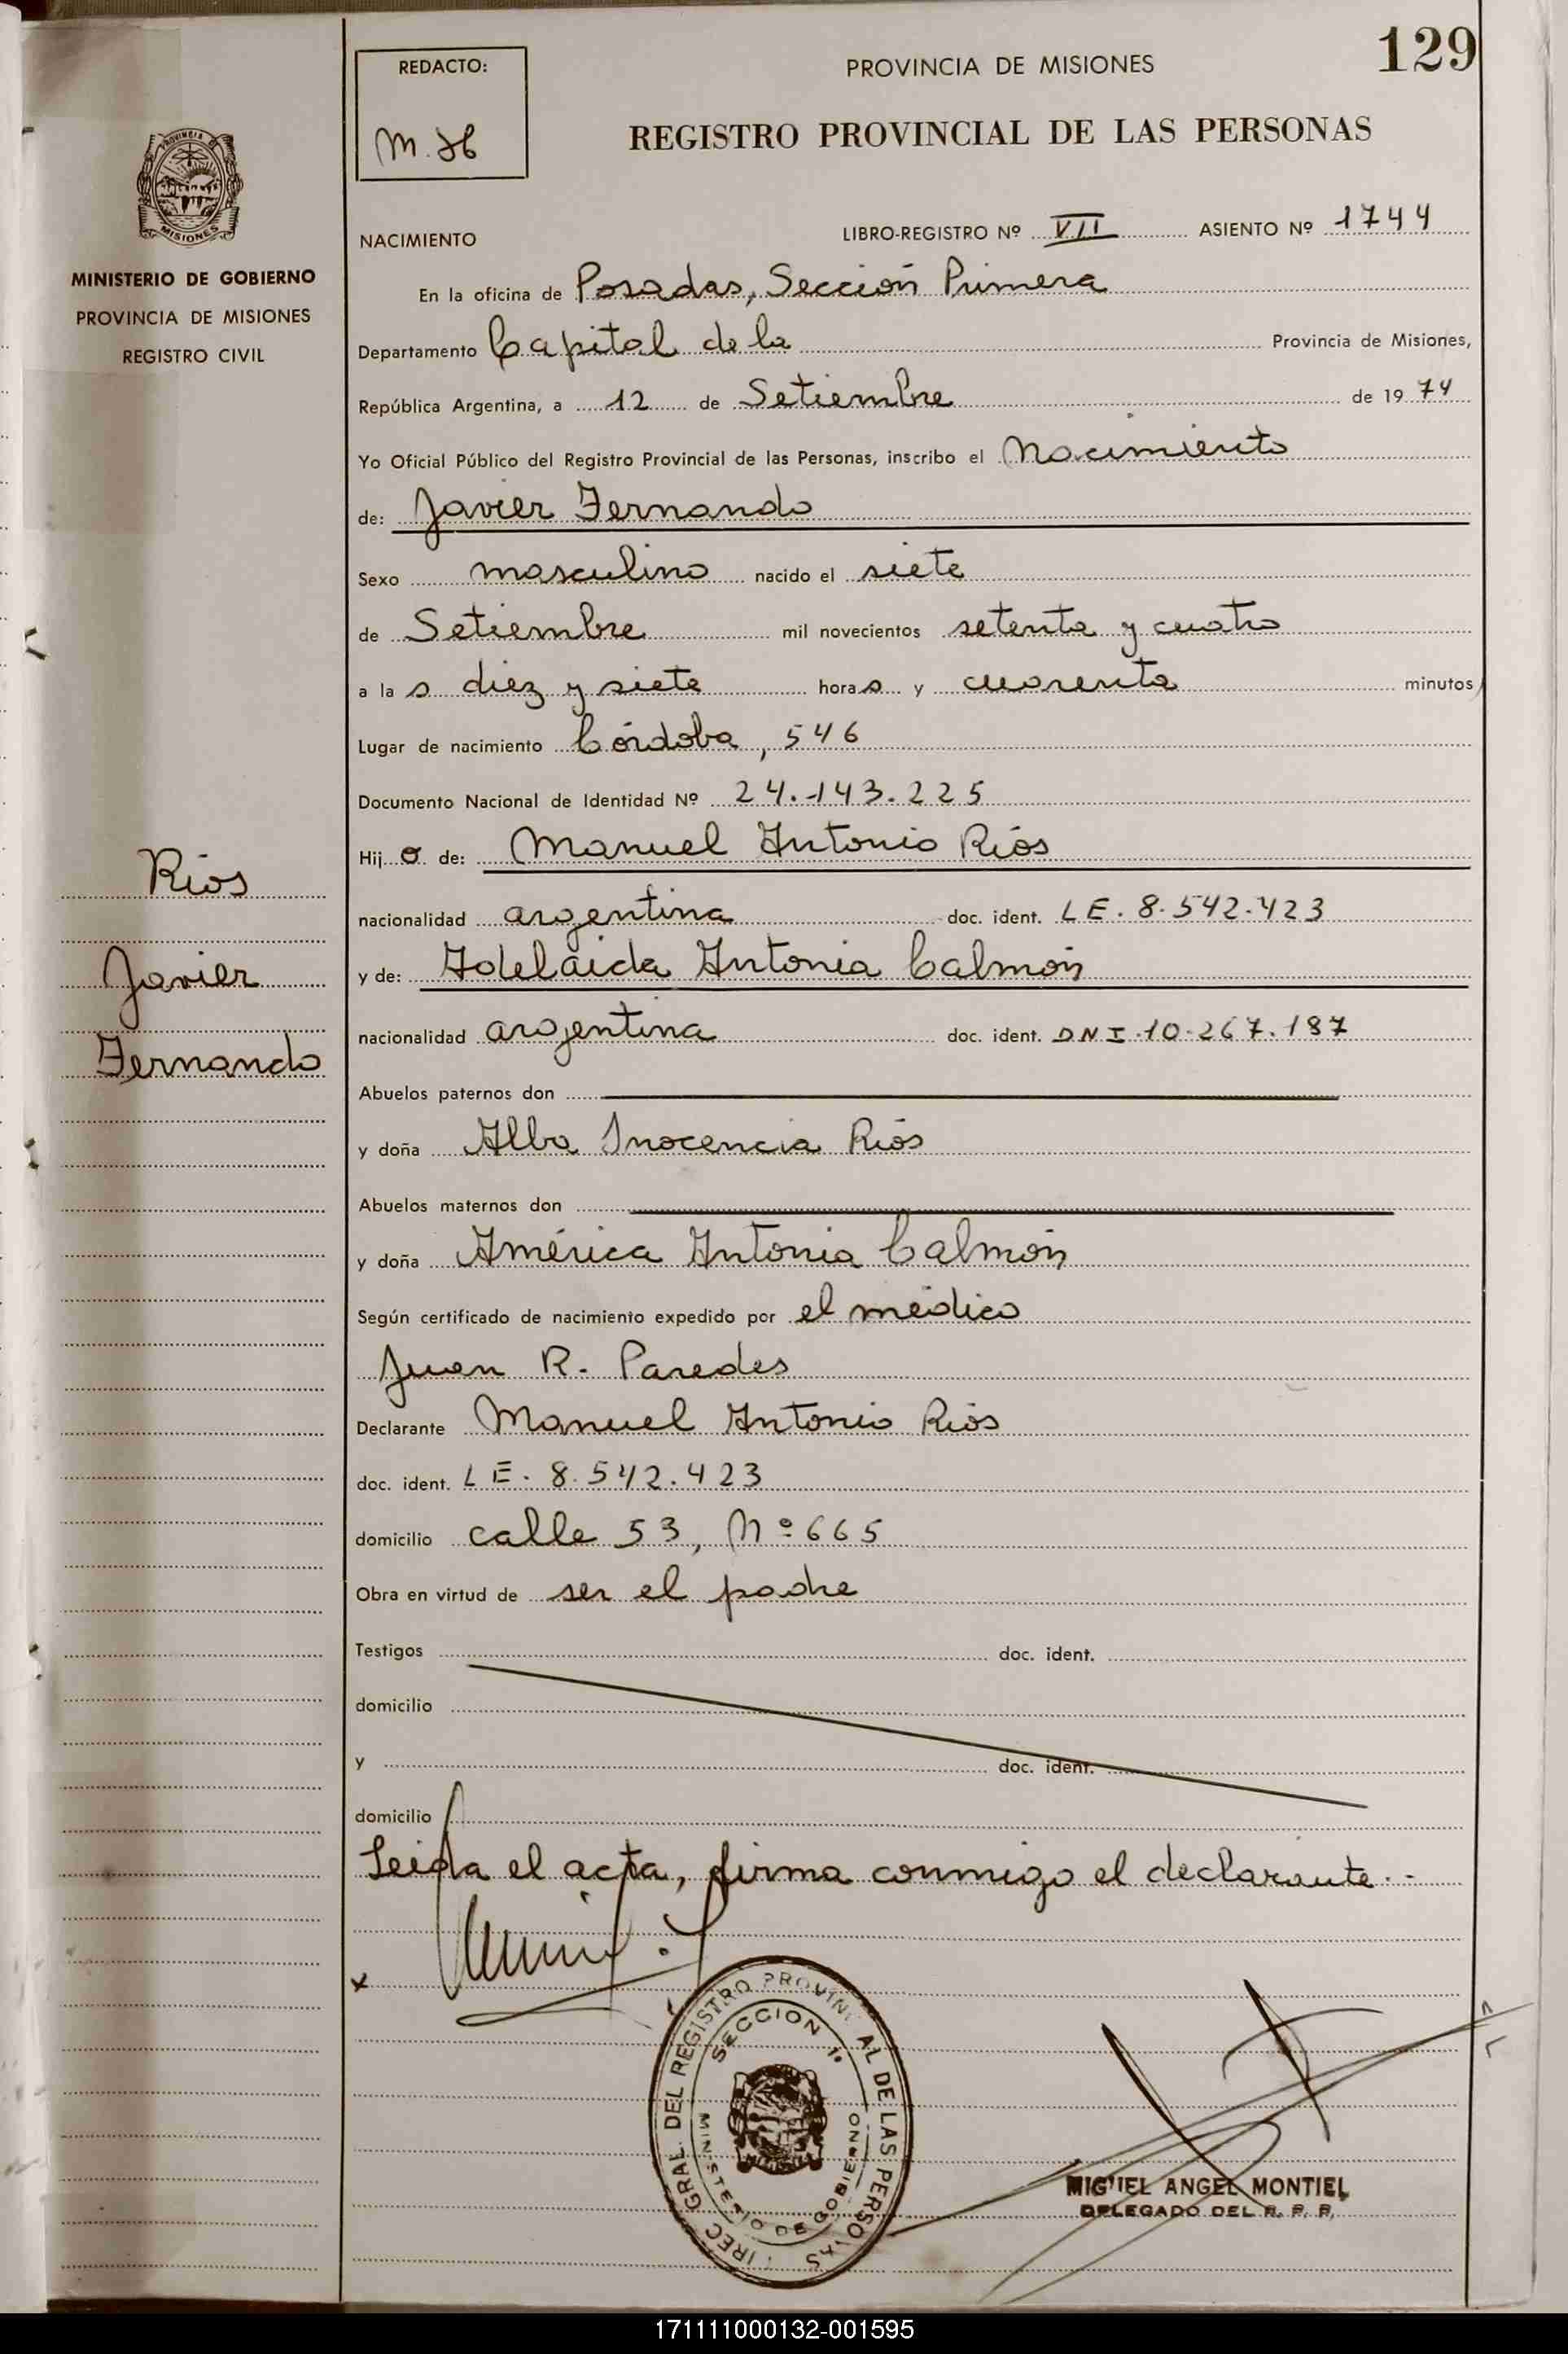 129
REDACTO:
M.H
PROVINCIA DE MISIONES
REGISTRO PROVINCIAL DE LAS PERSONAS
PROVINCIA
MISIONES
MINISTERIO DE GOBIERNO
PROVINCIA DE MISIONES
REGISTRO CIVIL
NACIMIENTO LIBRO-REGISTRO Nº VII ASIENTO Nº 1744
En la oficina de Posadas, Sección Primera
Departamento Capital de la Provincia de Misiones,
República Argentina, a 12 de Setiembre de 1974
Yo Oficial Público del Registro Provincial de las Personas, inscribo el Nacimiento
de: Javier Fernando
Sexo masculino nacido el siete
de Setiembre mil novecientos setenta y cuatro
a la s diez y siete hora s y cuarenta minutos
Lugar de nacimiento Córdoba, 546
Documento Nacional de Identidad Nº 24.143.225
Hij o de: Manuel Antonio Ríos
nacionalidad argentina doc. ident. LE. 8.542.423
y de: Adelaida Antonia Calmón
nacionalidad argentina doc. ident. DNI 10.267.187
Abuelos paternos don
y doña Alba Inocencia Ríos
Abuelos maternos don
y doña América Antonia Calmón
Según certificado de nacimiento expedido por el médico
Juan R. Paredes
Declarante Manuel Antonio Ríos
doc. ident. LE. 8.542.423
domicilio calle 53, Nº 665
Obra en virtud de ser el padre
Testigos doc. ident.
domicilio
y doc. ident.
domicilio
Leida el acta, firma conmigo el declarante.-
x
Ríos
Javier
Fernando
DIREC GRAL. DEL REGISTRO PROVINCIAL DE LAS PERSONAS
SECCION 1ª
MINISTERIO DE GOBIERNO
MIGUEL ANGEL MONTIEL
DELEGADO DEL R. P. P.
171111000132-001595